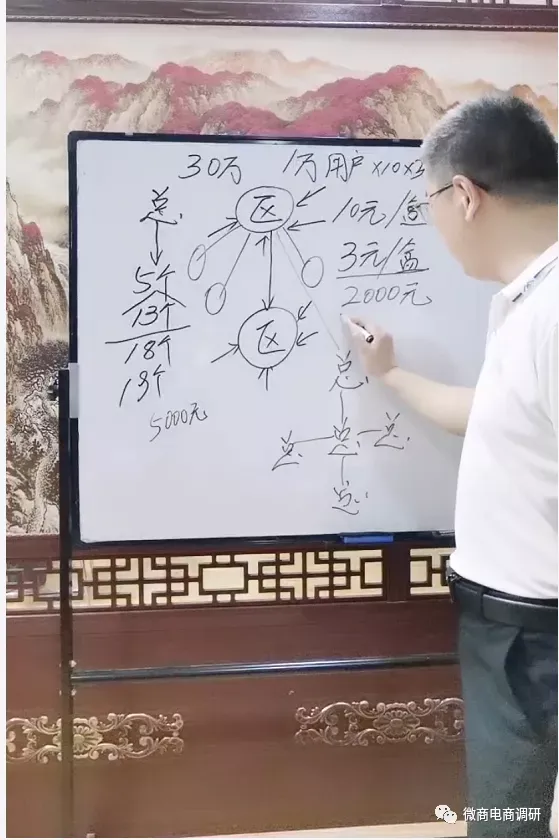 30万 1万用户×10×3
总
5个
13个
18个
13个
5000元
区
区
10元/盒
3元/盒
2000元
总
总 总 总
总
微商电商调研